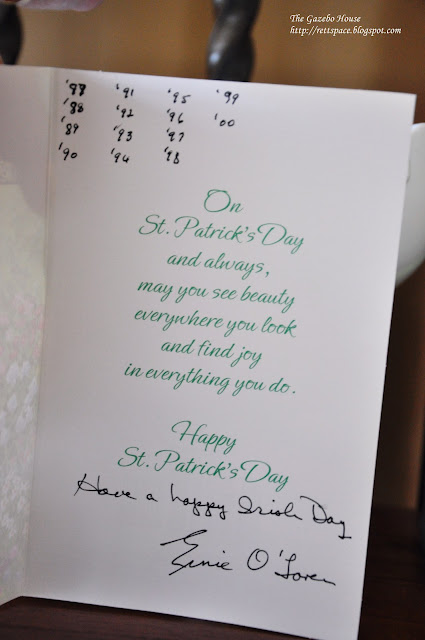 The Gazebo House
http://rettspace.blogspot.com
'87 '91 '95 '99
'88 '92 '96 '00
'89 '93 '97
'90 '94 '98
On
St. Patrick's Day
and always,
may you see beauty
everywhere you look
and find joy
in everything you do.
Happy
St. Patrick's Day
Have a happy Irish Day
Ernie O'Loren